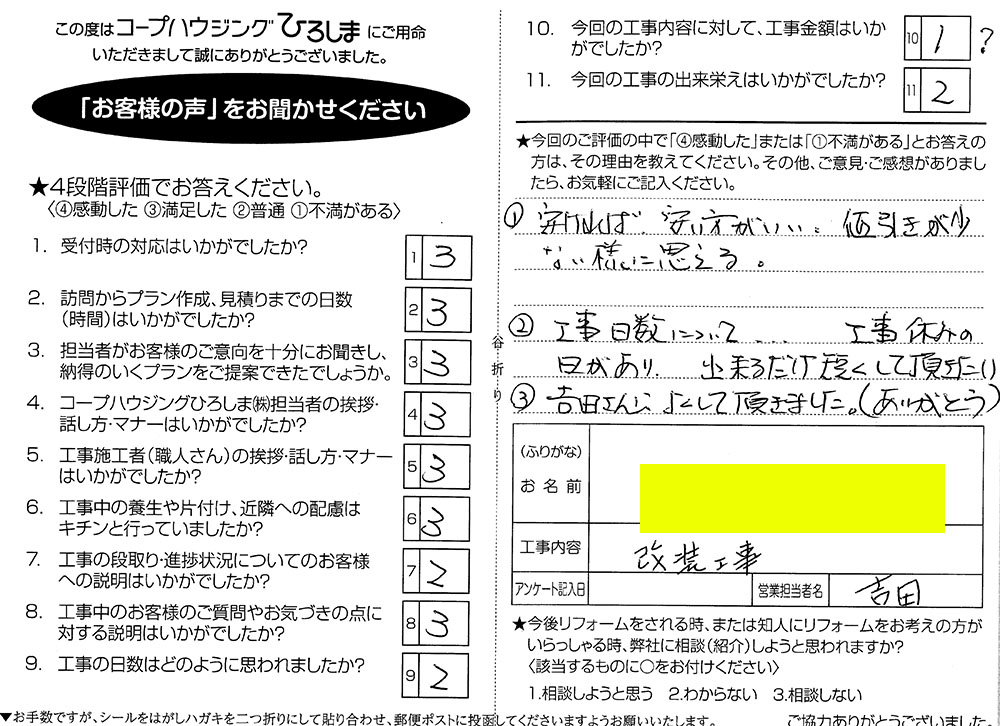 この度はコープハウジングひろしまにご用命
いただきまして誠にありがとうございました。
「お客様の声」をお聞かせください
★4段階評価でお答えください。
〈④感動した ③満足した ②普通 ①不満がある〉
1. 受付時の対応はいかがでしたか?
1 3
2. 訪問からプラン作成、見積りまでの日数
(時間)はいかがでしたか?
2 3
3. 担当者がお客様のご意向を十分にお聞きし、
納得のいくプランをご提案できたでしょうか。
3 3
4. コープハウジングひろしま㈱担当者の挨拶・
話し方・マナーはいかがでしたか?
4 3
5. 工事施工者(職人さん)の挨拶・話し方・マナー
はいかがでしたか?
5 3
6. 工事中の養生や片付け、近隣への配慮は
キチンと行っていましたか?
6 3
7. 工事の段取り・進捗状況についてのお客様
への説明はいかがでしたか?
7 2
8. 工事中のお客様のご質問やお気づきの点に
対する説明はいかがでしたか?
8 3
9. 工事の日数はどのように思われましたか?
9 2
▼お手数ですが、シールをはがしハガキを二つ折りにして貼り合わせ、郵便ポストに投函してくださいますようお願いいたします。
谷折り
10. 今回の工事内容に対して、工事金額はいか
がでしたか?
10 1 ?
11. 今回の工事の出来栄えはいかがでしたか?
11 2
★今回のご評価の中で「④感動した」または「①不満がある」とお答えの
方は、その理由を教えてください。その他、ご意見・ご感想がありまし
たら、お気軽にご記入ください。
① 安ければ 安い方がいい。値引きが少
ない様に思える。
② 工事日数について... 工事休みの
日があり、出来るだけ短くして頂きたい
③ 吉田さんによくして頂きました。(ありがとう)
(ふりがな)
お名前
工事内容 改装工事
アンケート記入日 営業担当者名 吉田
★今後リフォームをされる時、または知人にリフォームをお考えの方が
いらっしゃる時、弊社に相談(紹介)しようと思われますか?
〈該当するものに○をお付けください〉
1.相談しようと思う 2.わからない 3.相談しない
ご協力ありがとうございました。